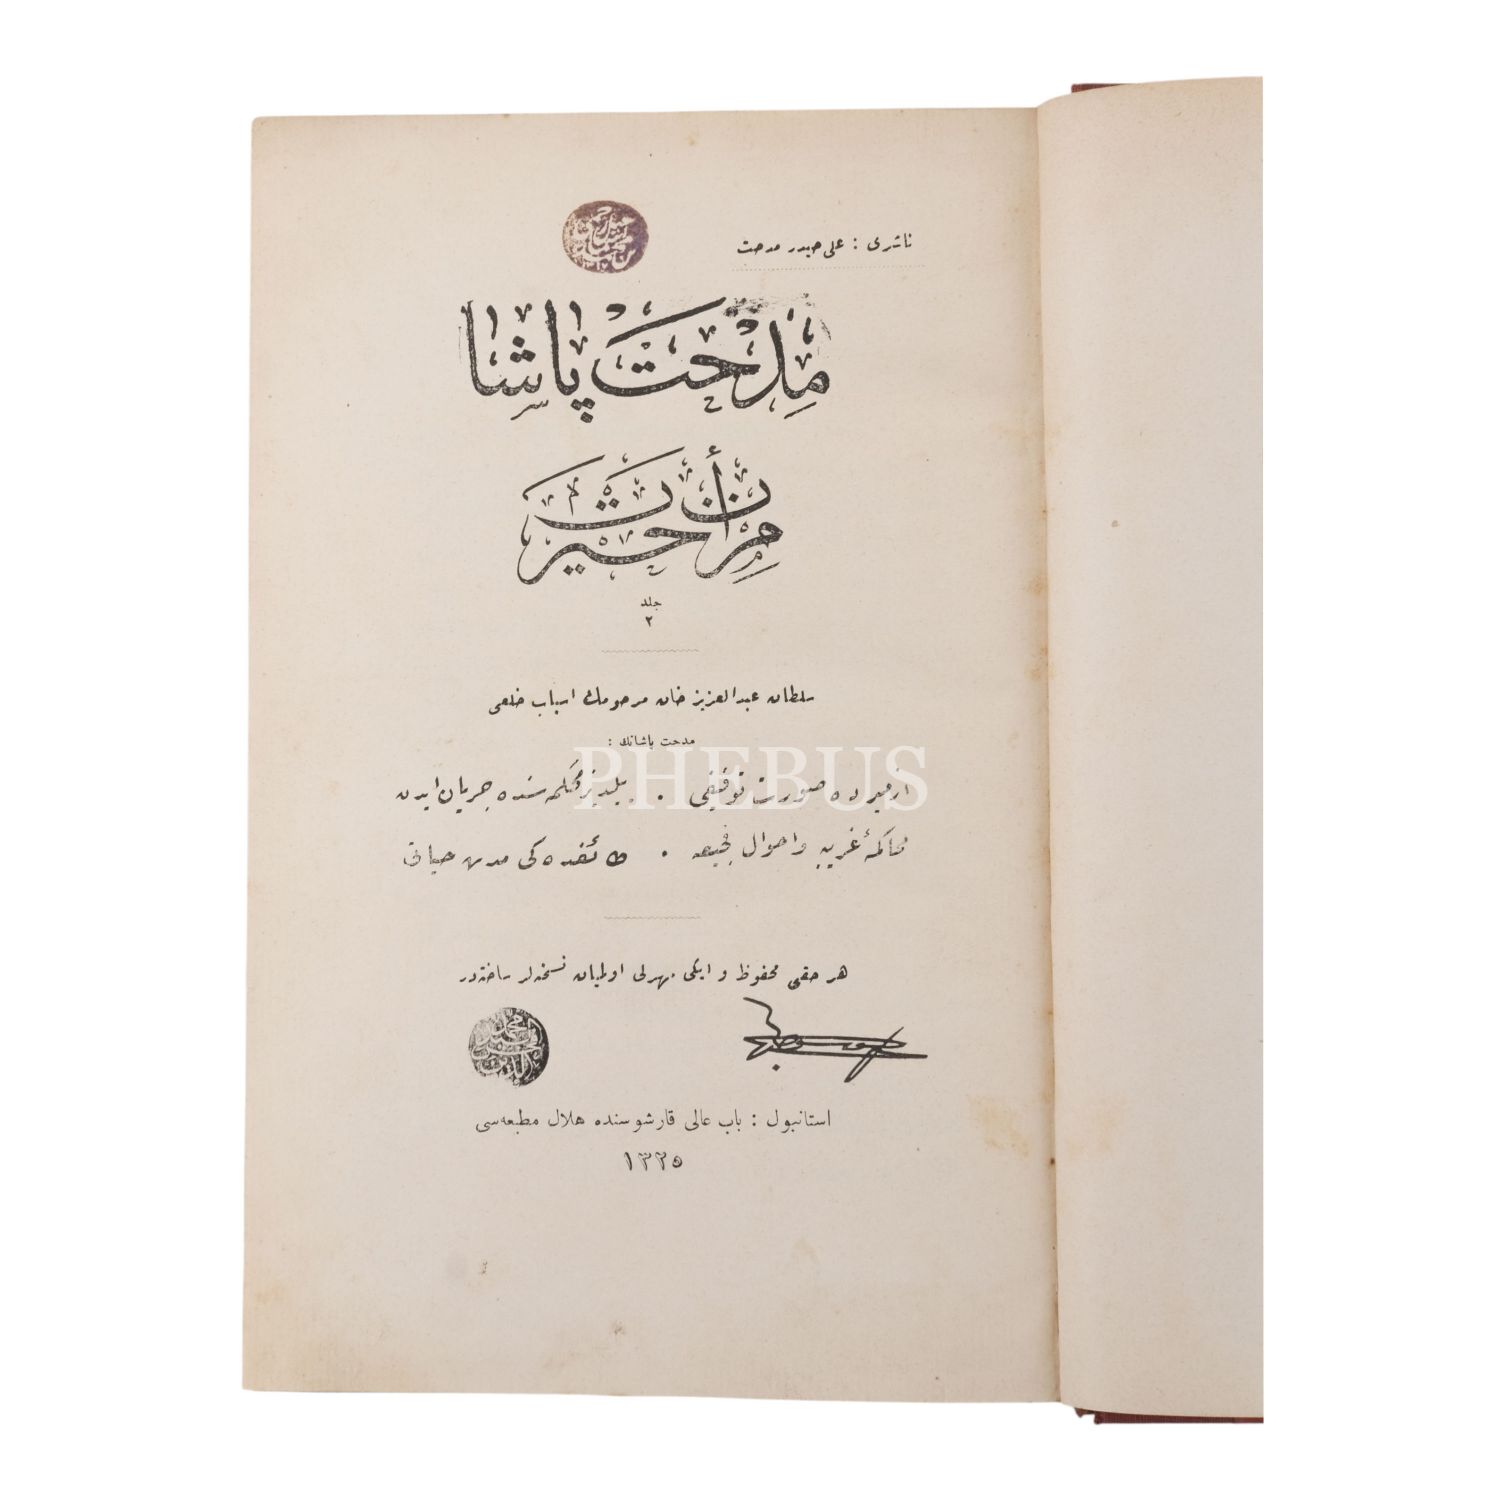 ناشری : علی حیدر مدحت
مِدْحَتْ پَاشَا
مِرْأٰتِ حَيْرَتْ
جلد
۲
سلطان عبدالعزیز خان مرحومك اسباب خلعی
مدحت پاشانك :
ازمیرده صورت توقیفی . یلدیز محکمه سنده جریان ایدن
محاکمهٔ غریبه و احوال فجیعه . طائفده کی مدت حیاتی
هر حقی محفوظ و ایکی مهرلی اولمایان نسخه لر ساخته در
استانبول : باب عالی قارشوسنده هلال مطبعه‌سی
۱۳۲۵
PHEBUS